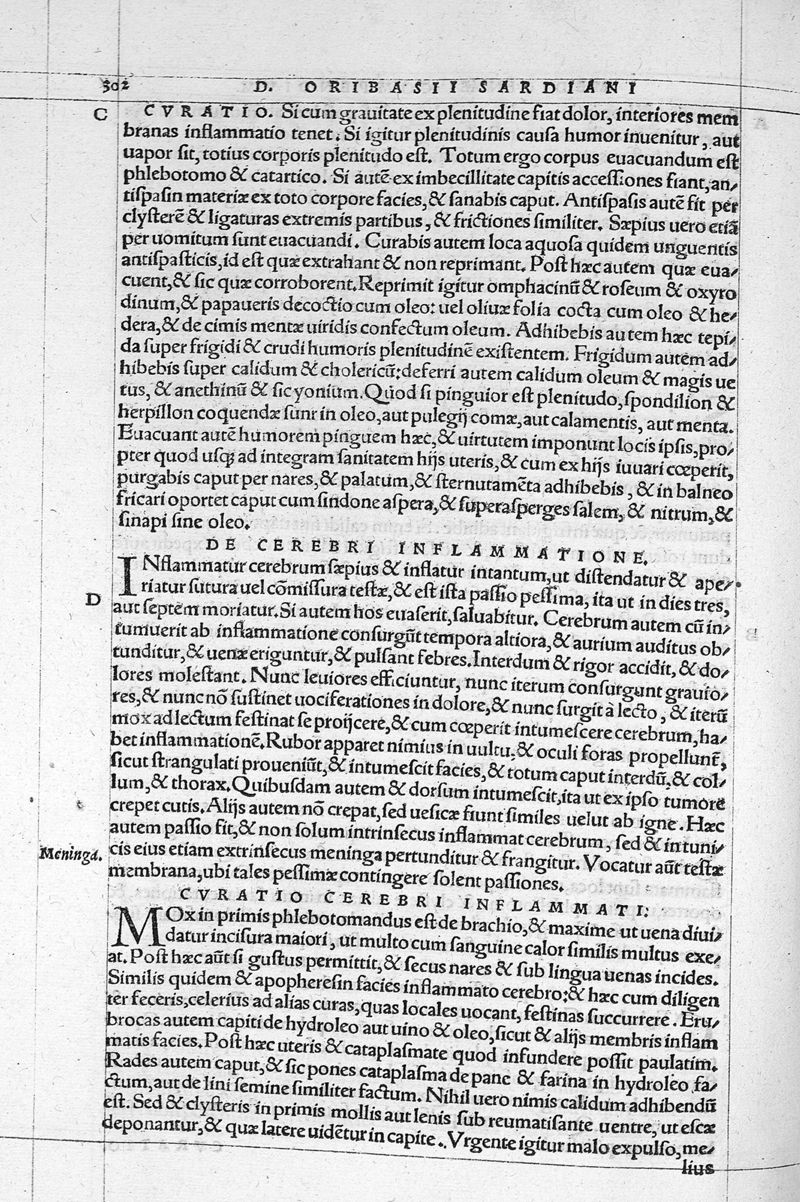 302 D. ORIBASII SARDIANI
C CVRATIO. Si cum grauitate ex plenitudine fiat dolor, interiores mem
branas inflammatio tenet. Si igitur plenitudinis causa humor inuenitur, aut
uapor sit, totius corporis plenitudo est. Totum ergo corpus euacuandum est
phlebotomo & catartico. Si autē ex imbecillitate capitis accessiones fiant, an-
tispasin materiæ ex toto corpore facies, & sanabis caput. Antispasis autē fit per
clysterē & ligaturas extremis partibus, & frictiones similiter. Sæpius uero etiā
per uomitum sunt euacuandi. Curabis autem loca aquosa quidem unguentis
antispasticis, id est quæ extrahant & non reprimant. Post hæc autem quæ eua-
cuent, & sic quæ corroborent. Reprimit igitur omphacinū & roseum & oxyro
dinum, & papaueris decoctio cum oleo: uel oliuæ folia cocta cum oleo & he-
dera, & de cimis mentæ uiridis confectum oleum. Adhibebis autem hæc tepi-
da super frigidi & crudi humoris plenitudinē existentem. Frigidum autem ad-
hibebis super calidum & cholericū: deferri autem calidum oleum & magis ue
tus, & anethinū & sicyonium. Quod si pinguior est plenitudo, spondilion &
herpillon coquendæ sunt in oleo, aut pulegij comæ, aut calamentis, aut menta.
Euacuant autē humorem pinguem hæc, & uirtutem imponunt locis ipsis, pro-
pter quod usq; ad integram sanitatem hijs uteris, & cum ex hijs iuuari cœperit,
purgabis caput per nares, & palatum, & sternutamēta adhibebis, & in balneo
fricari oportet caput cum sindone aspera, & superasperges salem, & nitrum, &
sinapi sine oleo.
DE CEREBRI INFLAMMATIONE.
INflammatur cerebrum sæpius & inflatur intantum, ut distendatur & ape-
riatur sutura uel cōmissura testæ, & est ista passio pessima, ita ut in dies tres,
D aut septem moriatur. Si autem hos euaserit, saluabitur. Cerebrum autem cū in-
tumuerit ab inflammatione consurgūt tempora altiora, & aurium auditus ob-
tunditur, & uenæ eriguntur, & pulsant febres. Interdum & rigor accidit, & do-
lores molestant. Nunc leuiores efficiuntur, nunc iterum consurgunt grauio-
res, & nunc nō sustinet uociferationes in dolore, & nunc surgit à lecto, & iterū
mox ad lectum festinat se proijcere, & cum cœperit intumescere cerebrum, ha-
bet inflammationē. Rubor apparet nimius in uultu, & oculi foras propellunt,
sicut strangulati proueniūt, & intumescit facies, & totum caput interdū, & col-
lum, & thorax. Quibusdam autem & dorsum intumescit, ita ut ex ipso tumore
crepet cutis. Alijs autem nō crepat, sed uesicæ fiunt similes uelut ab igne. Hæc
autem passio fit, & non solum intrinsecus inflammat cerebrum, sed & in tuni-
Meninga. cis eius etiam extrinsecus meninga pertunditur & frangitur. Vocatur aūt testæ
membrana, ubi tales pessimæ contingere solent passiones.
CVRATIO CEREBRI INFLAMMATI.
MOx in primis phlebotomandus est de brachio, & maxime ut uena diui-
datur incisura maiori, ut multo cum sanguine calor similis multus exe-
at. Post hæc aūt si gustus permittit, & secus nares & sub lingua uenas incides.
Similis quidem & apopheresin facies inflammato cerebro: & hæc cum diligen
ter feceris, celerius ad alias curas, quas locales uocant, festinas succurrere. Eru-
brocas autem capiti de hydroleo aut uino & oleo, sicut & alijs membris inflam
matis facies. Post hæc uteris & cataplasmate quod infundere possit paulatim.
Rades autem caput, & sic pones cataplasma de pane & farina in hydroleo fa-
ctum, aut de lini semine similiter factum. Nihil uero nimis calidum adhibendū
est. Sed & clysteris in primis mollis aut lenis sub reumatisante uentre, ut escæ
deponantur, & quæ latere uidētur in capite. Vrgente igitur malo expulso, me-
lius